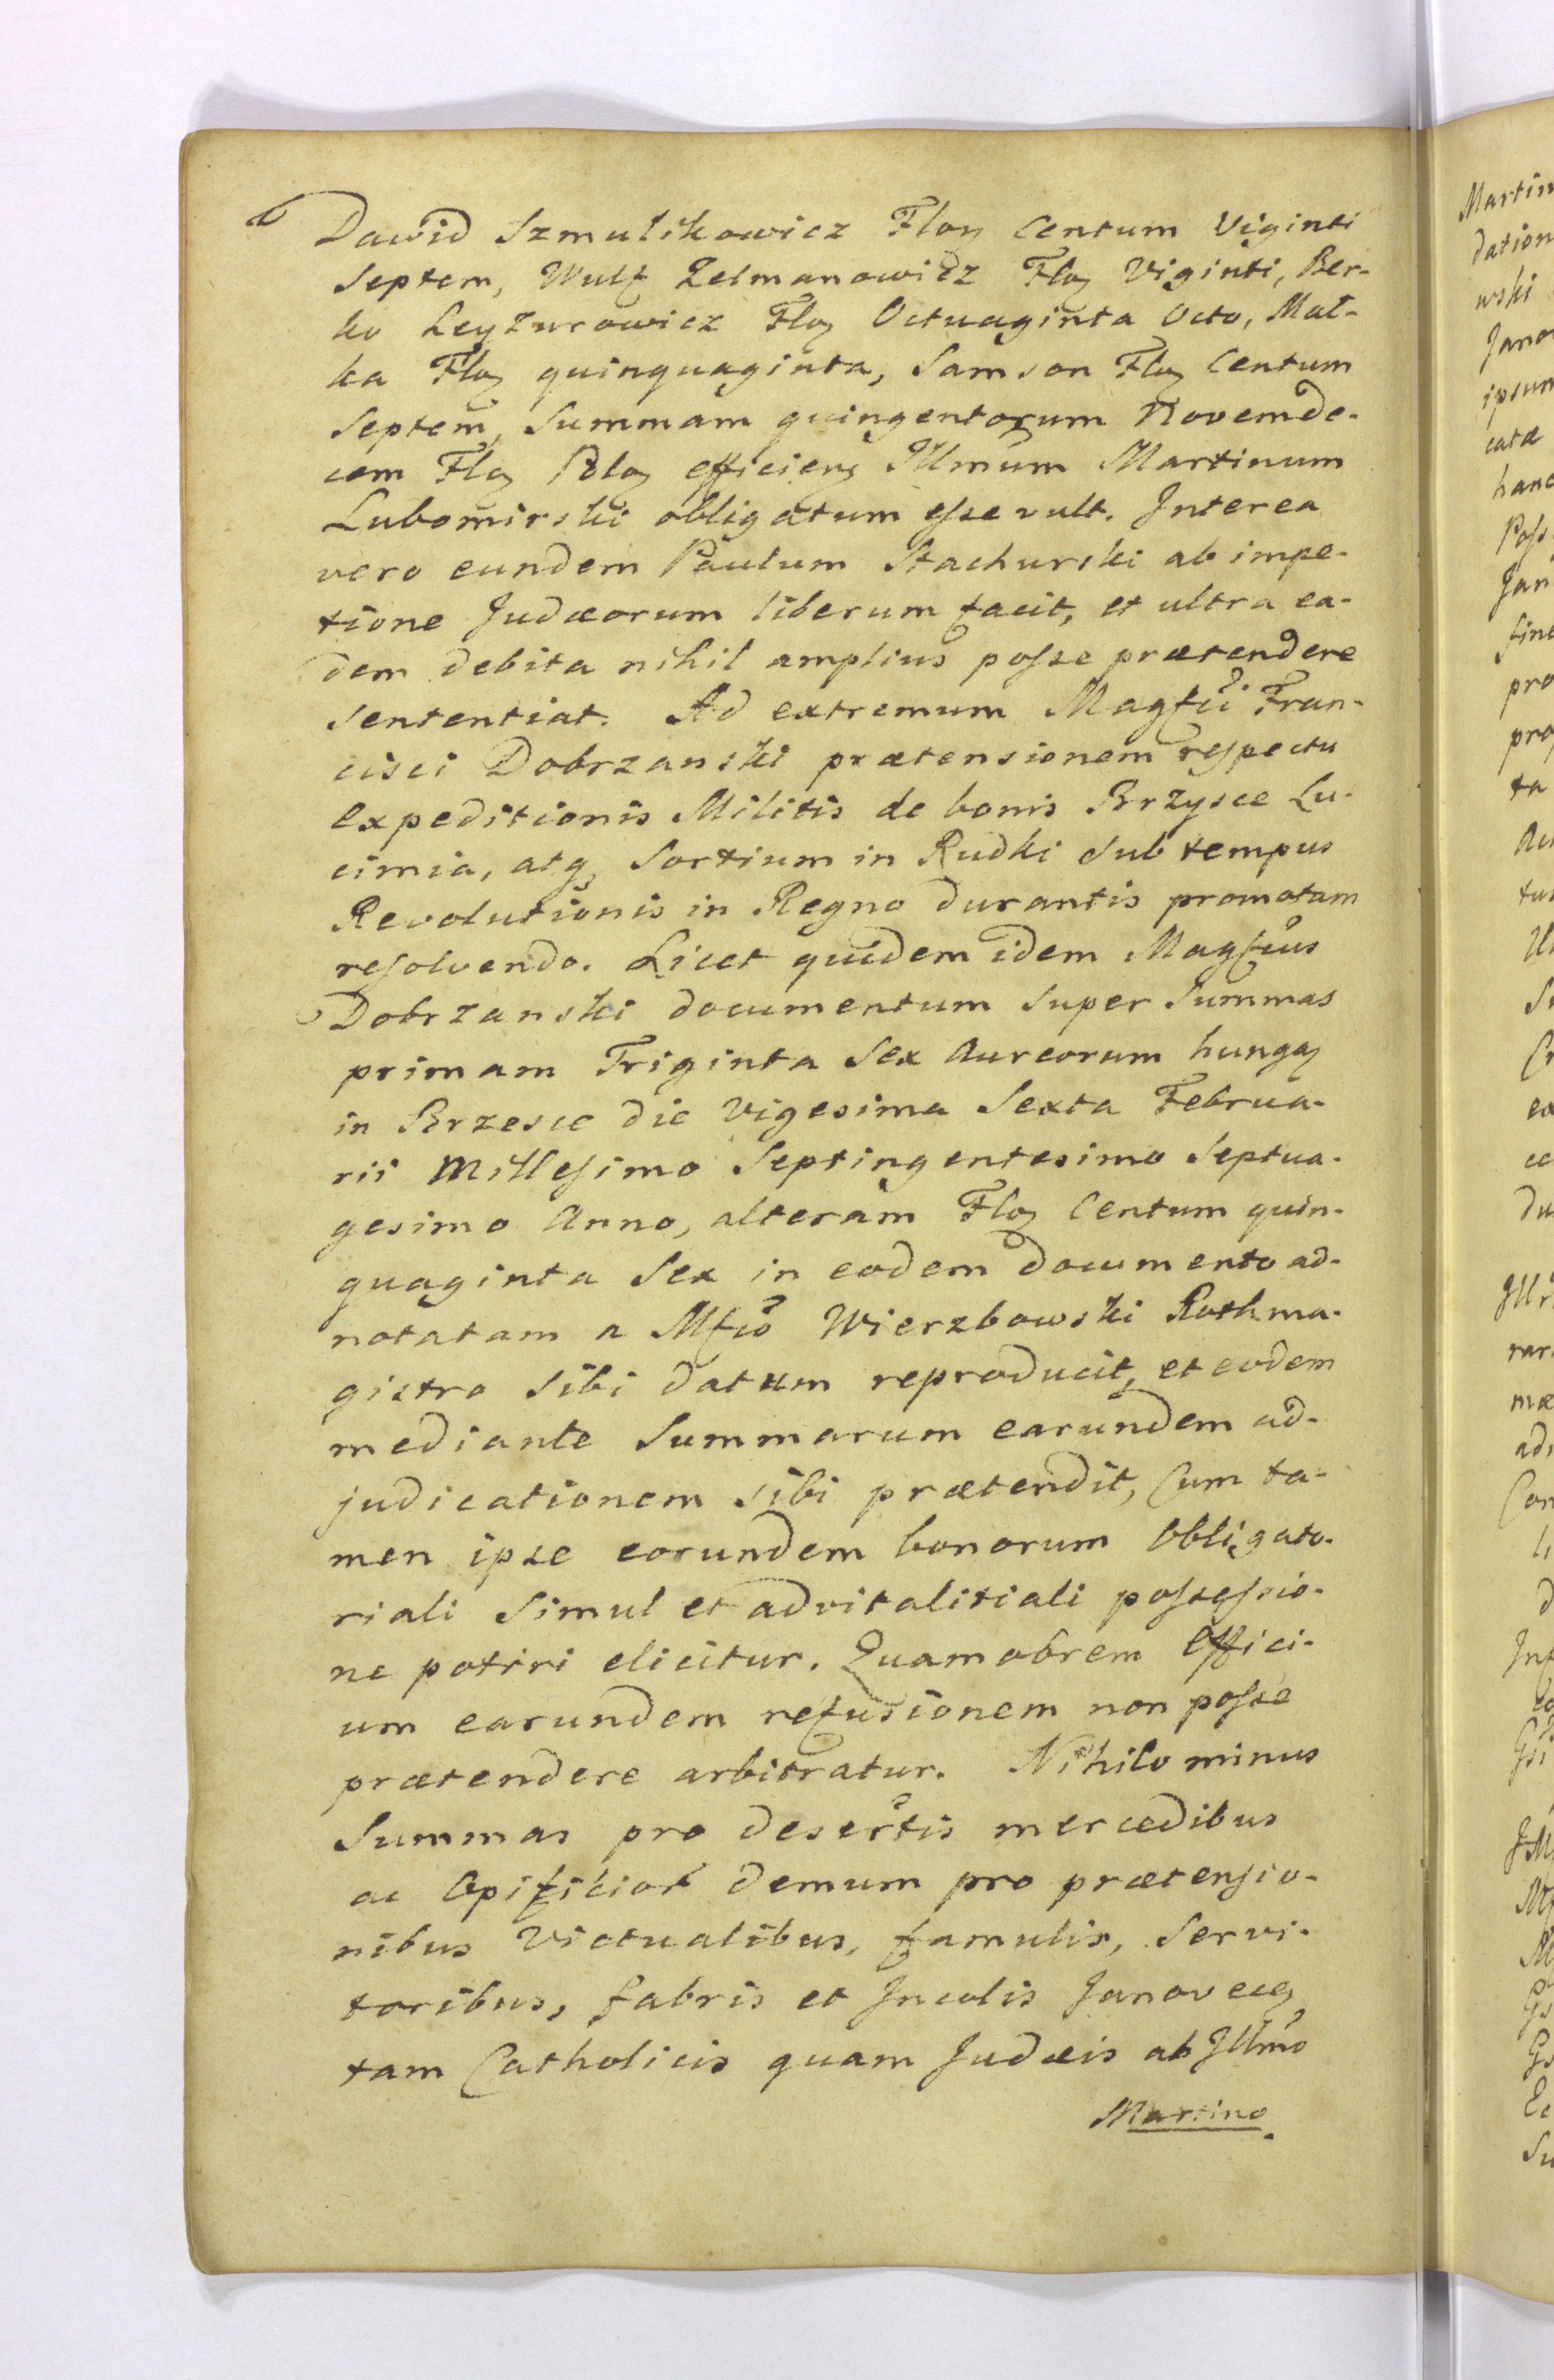 Dawid Szmulikowicz Floꝝ Centum Viginti
Septem, Wulf Zelmanowicz Floꝝ Viginti, Ber-
ko Leyzurowicz Floꝝ Octuaginta Octo, Mal-
ka Floꝝ quinquaginta, Samson Floꝝ Centum
Septem, Summam quingentorum Novemde-
cem Floꝝ Poloꝝ efficieng Illmum Martinum
Lubomirski obligatum esse vult. Interea
vero eundem Paulum Stachurski ab impe-
tione Judæorum liberum facit, et ultra ea-
dem debita nihil amplius posse prætendere
sententiat. Ad extremum Magfci Fran-
cisci Dobrzanski prætensionem respectu
expeditionis Militis de bonis Brzysce Lu-
cimia, atq Sortium in Rudki sub tempus
Revolutionis in Regno durantis promotam
resolvendo. Licet quidem idem Magfcus
Dobrzanski documentum super Summas
primam Triginta Sex Aureorum hungaꝝ
in Brzesce die vigesima Sexta Februa-
rii Millesimo Septingentesimo Septua-
gesimo Anno, alteram Floꝝ Centum quin-
quaginta Sex in eodem documento ad-
notatam a Mfco Wierzbowski Rothma-
gistro sibi datum reproducit, et eodem
mediante Summarum earundem ad-
judicationem sibi prætendit, Cum ta-
men ipse eorundem bonorum Obligato-
riali simul et advitalitiali possessio-
ne potiri elicitur. Quamobrem Offici-
um earundem refusionem non posse
prætendere arbitratur. Nihilominus
Summas pro desertis mercedibus
ac Opificior demum pro prætensio-
nibus Victualibus, famulis, Servi-
toribus, fabris et Incolis Janoveceg
tam Catholicis quam Judæis ab Illmo
Martino
Martin
dation
wski
Jano
ipsum
catæ
hanc
Poss
Jan
fine
pro
pro
ta